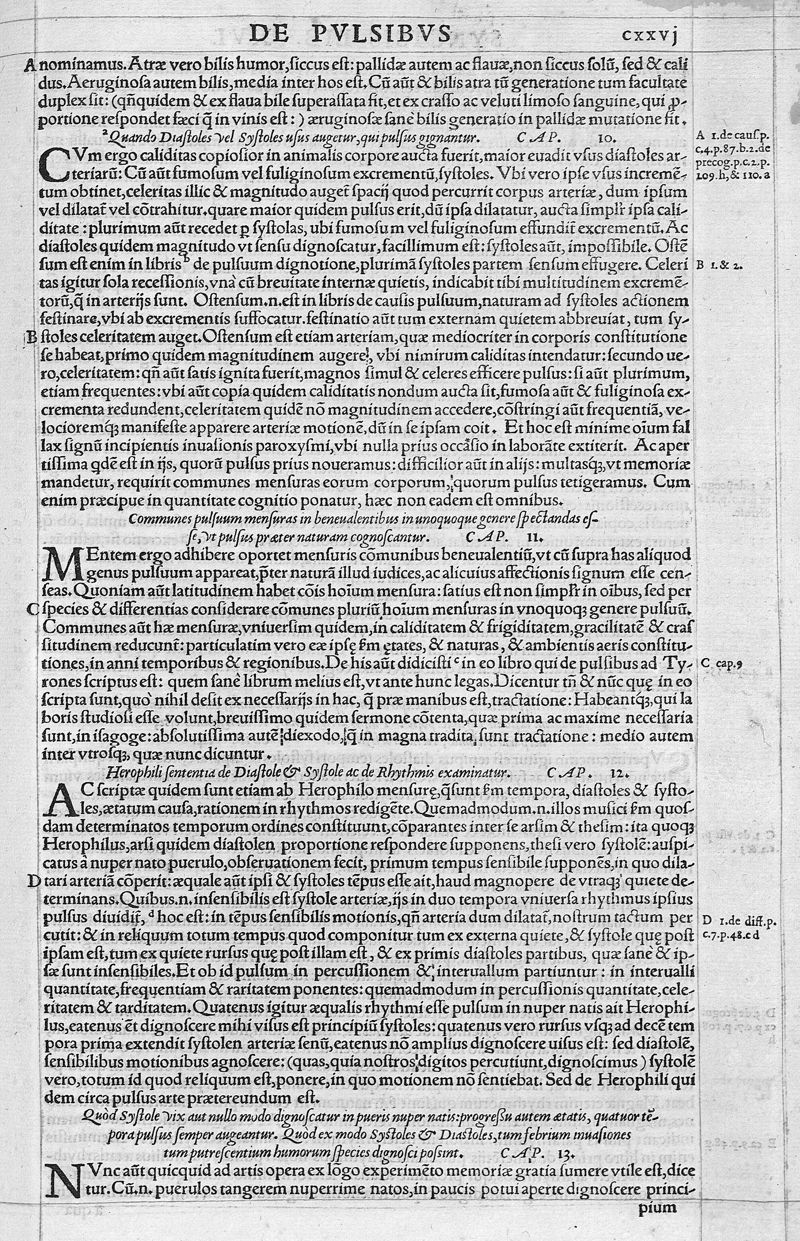 DE PVLSIBVS
cxxvj
A nominamus. Atræ vero bilis humor, siccus est: pallidæ autem ac flauæ, non siccus solũ, sed & cali
dus. Aeruginosa autem bilis, media inter hos est. Cũ aũt & bilis atra tũ generatione tum facultate
duplex sit: (qñquidem & ex flaua bile superassata fit, et ex crasso ac veluti limoso sanguine, qui ꝓ-
portione respondet fæci q̃ in vinis est:) æruginosæ sanè bilis generatio in pallidæ mutatione fit.
ªQuando Diastoles vel Systoles usus augetur, qui pulsus gignantur. CAP. 10.
A 1. de caus. p.
c. 4. p. 87. b. 2. de
precog. p. c. 2. p.
109. h, & 110. a
CVm ergo caliditas copiosior in animalis corpore aucta fuerit, maior euadit vsus diastoles ar-
teriarũ: Cũ aũt fumosum vel fuliginosum excrementũ, systoles. Vbi vero ipse vsus incremẽ-
tum obtinet, celeritas illic & magnitudo augeť spacij quod percurrit corpus arteriæ, dum ipsum
vel dilatať vel cõtrahitur. quare maior quidem pulsus erit, dũ ipsa dilatatur, aucta simplr̃ ipsa cali-
ditate: plurimum aũt recedet ꝑ systolas, ubi fumosum vel fuliginosum effundiť excrementũ. Ac
diastoles quidem magnitudo vt sensu dignoscatur, facillimum est: systoles aũt, impossibile. Ostẽ
sum est enim in libris ᵇ de pulsuum dignotione, plurimã systoles partem sensum effugere. Celeri
B 1. & 2.
tas igitur sola recessionis, vnà cũ breuitate internæ quietis, indicabit tibi multitudinem excremẽ-
torũ, q̃ in arterijs sunt. Ostensum .n. est in libris de causis pulsuum, naturam ad systoles actionem
festinare, vbi ab excrementis suffocatur. festinatio aũt tum externam quietem abbreuiat, tum sy-
B stoles celeritatem auget. Ostensum est etiam arteriam, quæ mediocriter in corporis constitutione
se habeat, primo quidem magnitudinem augere, vbi nimirum caliditas intendatur: secundo ue-
ro, celeritatem: qñ aũt satis ignita fuerit, magnos simul & celeres efficere pulsus: si aũt plurimum,
etiam frequentes: vbi aũt copia quidem caliditatis nondum aucta sit, fumosa aũt & fuliginosa ex-
crementa redundent, celeritatem quidẽ nõ magnitudinem accedere, cõstringi aũt frequentiã, ve-
locioremq; manifeste apparere arteriæ motionẽ, dũ in se ipsam coit. Et hoc est minime oĩum fal
lax signũ incipientis inuasionis paroxysmi, vbi nulla prius occasio in laborãte extiterit. Ac aper
tissima qdẽ est in ijs, quorũ pulsus prius noueramus: difficilior aũt in alijs: multasq;, vt memoriæ
mandetur, requirit communes mensuras eorum corporum, quorum pulsus tetigeramus. Cum
enim præcipue in quantitate cognitio ponatur, hæc non eadem est omnibus.
Communes pulsuum mensuras in beneualentibus in unoquoque genere spectandas es-
se, vt pulsus præter naturam cognoscantur. CAP. 11.
MEntem ergo adhibere oportet mensuris cõmunibus beneualentiũ, vt cũ supra has aliquod
genus pulsuum appareat, p̃ter naturã illud iudices, ac alicuius affectionis signum esse cen-
seas. Quoniam aũt latitudinem habet cõis hoĩum mensura: satius est non simplr̃ in oĩbus, sed per
C species & differentias considerare cõmunes pluriũ hoĩum mensuras in vnoquoq; genere pulsuũ.
Communes aũt hæ mensuræ, vniuersim quidem, in caliditatem & frigiditatem, gracilitatẽ & cras
situdinem reducunť: particulatim vero eæ ipsę ẜm ętates, & naturas, & ambientis aeris constitu-
tiones, in anni temporibus & regionibus. De his aũt didicisti ᶜ in eo libro qui de pulsibus ad Ty-
C cap. 9
rones scriptus est: quem sanè librum melius est, vt ante hunc legas. Dicentur tñ & nũc quę in eo
scripta sunt, quò nihil desit ex necessarijs in hac, q̃ præ manibus est, tractatione: Habeantq;, qui la
boris studiosi esse volunt, breuissimo quidem sermone cõtenta, quæ prima ac maxime necessaria
sunt, in isagoge: absolutissima autẽ diexodo, q̃ in magna tradita sunt tractatione: medio autem
inter vtrosq;, quæ nunc dicuntur.
Herophili sententia de Diastole & Systole ac de Rhythmis examinatur. CAP. 12.
AC scriptæ quidem sunt etiam ab Herophilo mensurę, q̃ sunt ẜm tempora, diastoles & systo-
les, ætatum causa, rationem in rhythmos redigẽte. Quemadmodum .n. illos musici ẜm quos-
dam determinatos temporum ordines constituunt, cõparantes inter se arsim & thesim: ita quoq;
Herophilus, arsi quidem diastolen proportione respondere supponens, thesi vero systolẽ: auspi-
catus à nuper nato puerulo, obseruationem fecit, primum tempus sensibile supponẽs, in quo dila-
D tari arteriã cõperit: æquale aũt ipsi & systoles tẽpus esse ait, haud magnopere de vtraq; quiete de-
terminans. Quibus .n. insensibilis est systole arteriæ, ijs in duo tempora vniuersa rhythmus ipsius
pulsus diuidiť, ᵈ hoc est: in tẽpus sensibilis motionis, qñ arteria dum dilatať, nostrum tactum per
D 1. de diff. p.
c. 7. p. 48. c d
cutit: & in reliquum totum tempus quod componitur tum ex externa quiete, & systole quę post
ipsam est, tum ex quiete rursus quę post illam est, & ex primis diastoles partibus, quæ sanè & ip-
sæ sunt insensibiles. Et ob id pulsum in percussionem & interuallum partiuntur: in interualli
quantitate, frequentiam & raritatem ponentes: quemadmodum in percussionis quantitate, cele-
ritatem & tarditatem. Quatenus igitur æqualis rhythmi esse pulsum in nuper natis ait Herophi-
lus, eatenus ẽt dignoscere mihi visus est principiũ systoles: quatenus vero rursus vsq; ad decẽ tem
pora prima extendit systolen arteriæ senũ, eatenus nõ amplius dignoscere uisus est: sed diastolẽ,
sensibilibus motionibus agnoscere: (quas, quia nostros digitos percutiunt, dignoscimus) systolẽ
vero, totum id quod reliquum est, ponere, in quo motionem nõ sentiebat. Sed de Herophili qui
dem circa pulsus arte prætereundum est.
Quòd Systole vix aut nullo modo dignoscatur in pueris nuper natis: progressu autem ætatis, quatuor tẽ-
pora pulsus semper augeantur. Quòd ex modo Systoles & Diastoles, tum febrium inuasiones
tum putrescentium humorum species dignosci possint. CAP. 13.
NVnc aũt quicquid ad artis opera ex lõgo experimẽto memoriæ gratia sumere vtile est, dice
tur. Cũ .n. puerulos tangerem nuperrime natos, in paucis potui aperte dignoscere princi-
pium